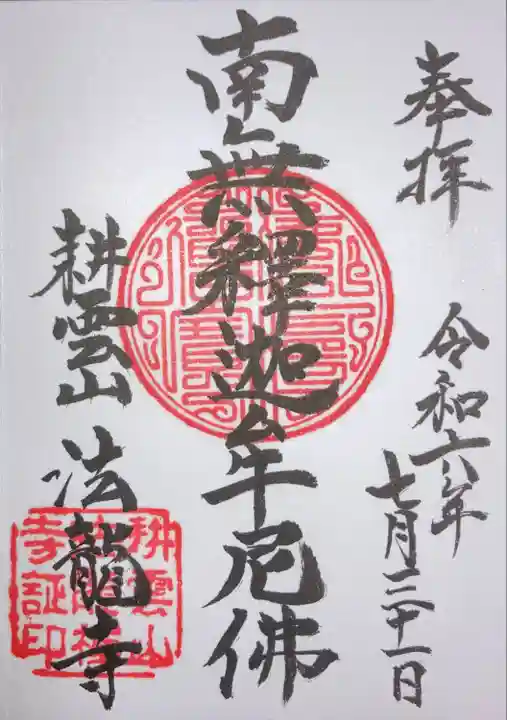 奉拝
令和六年
七月三十一日
南無釋迦牟尼佛
耕雲山
法龍寺
耕雲山
寺証印